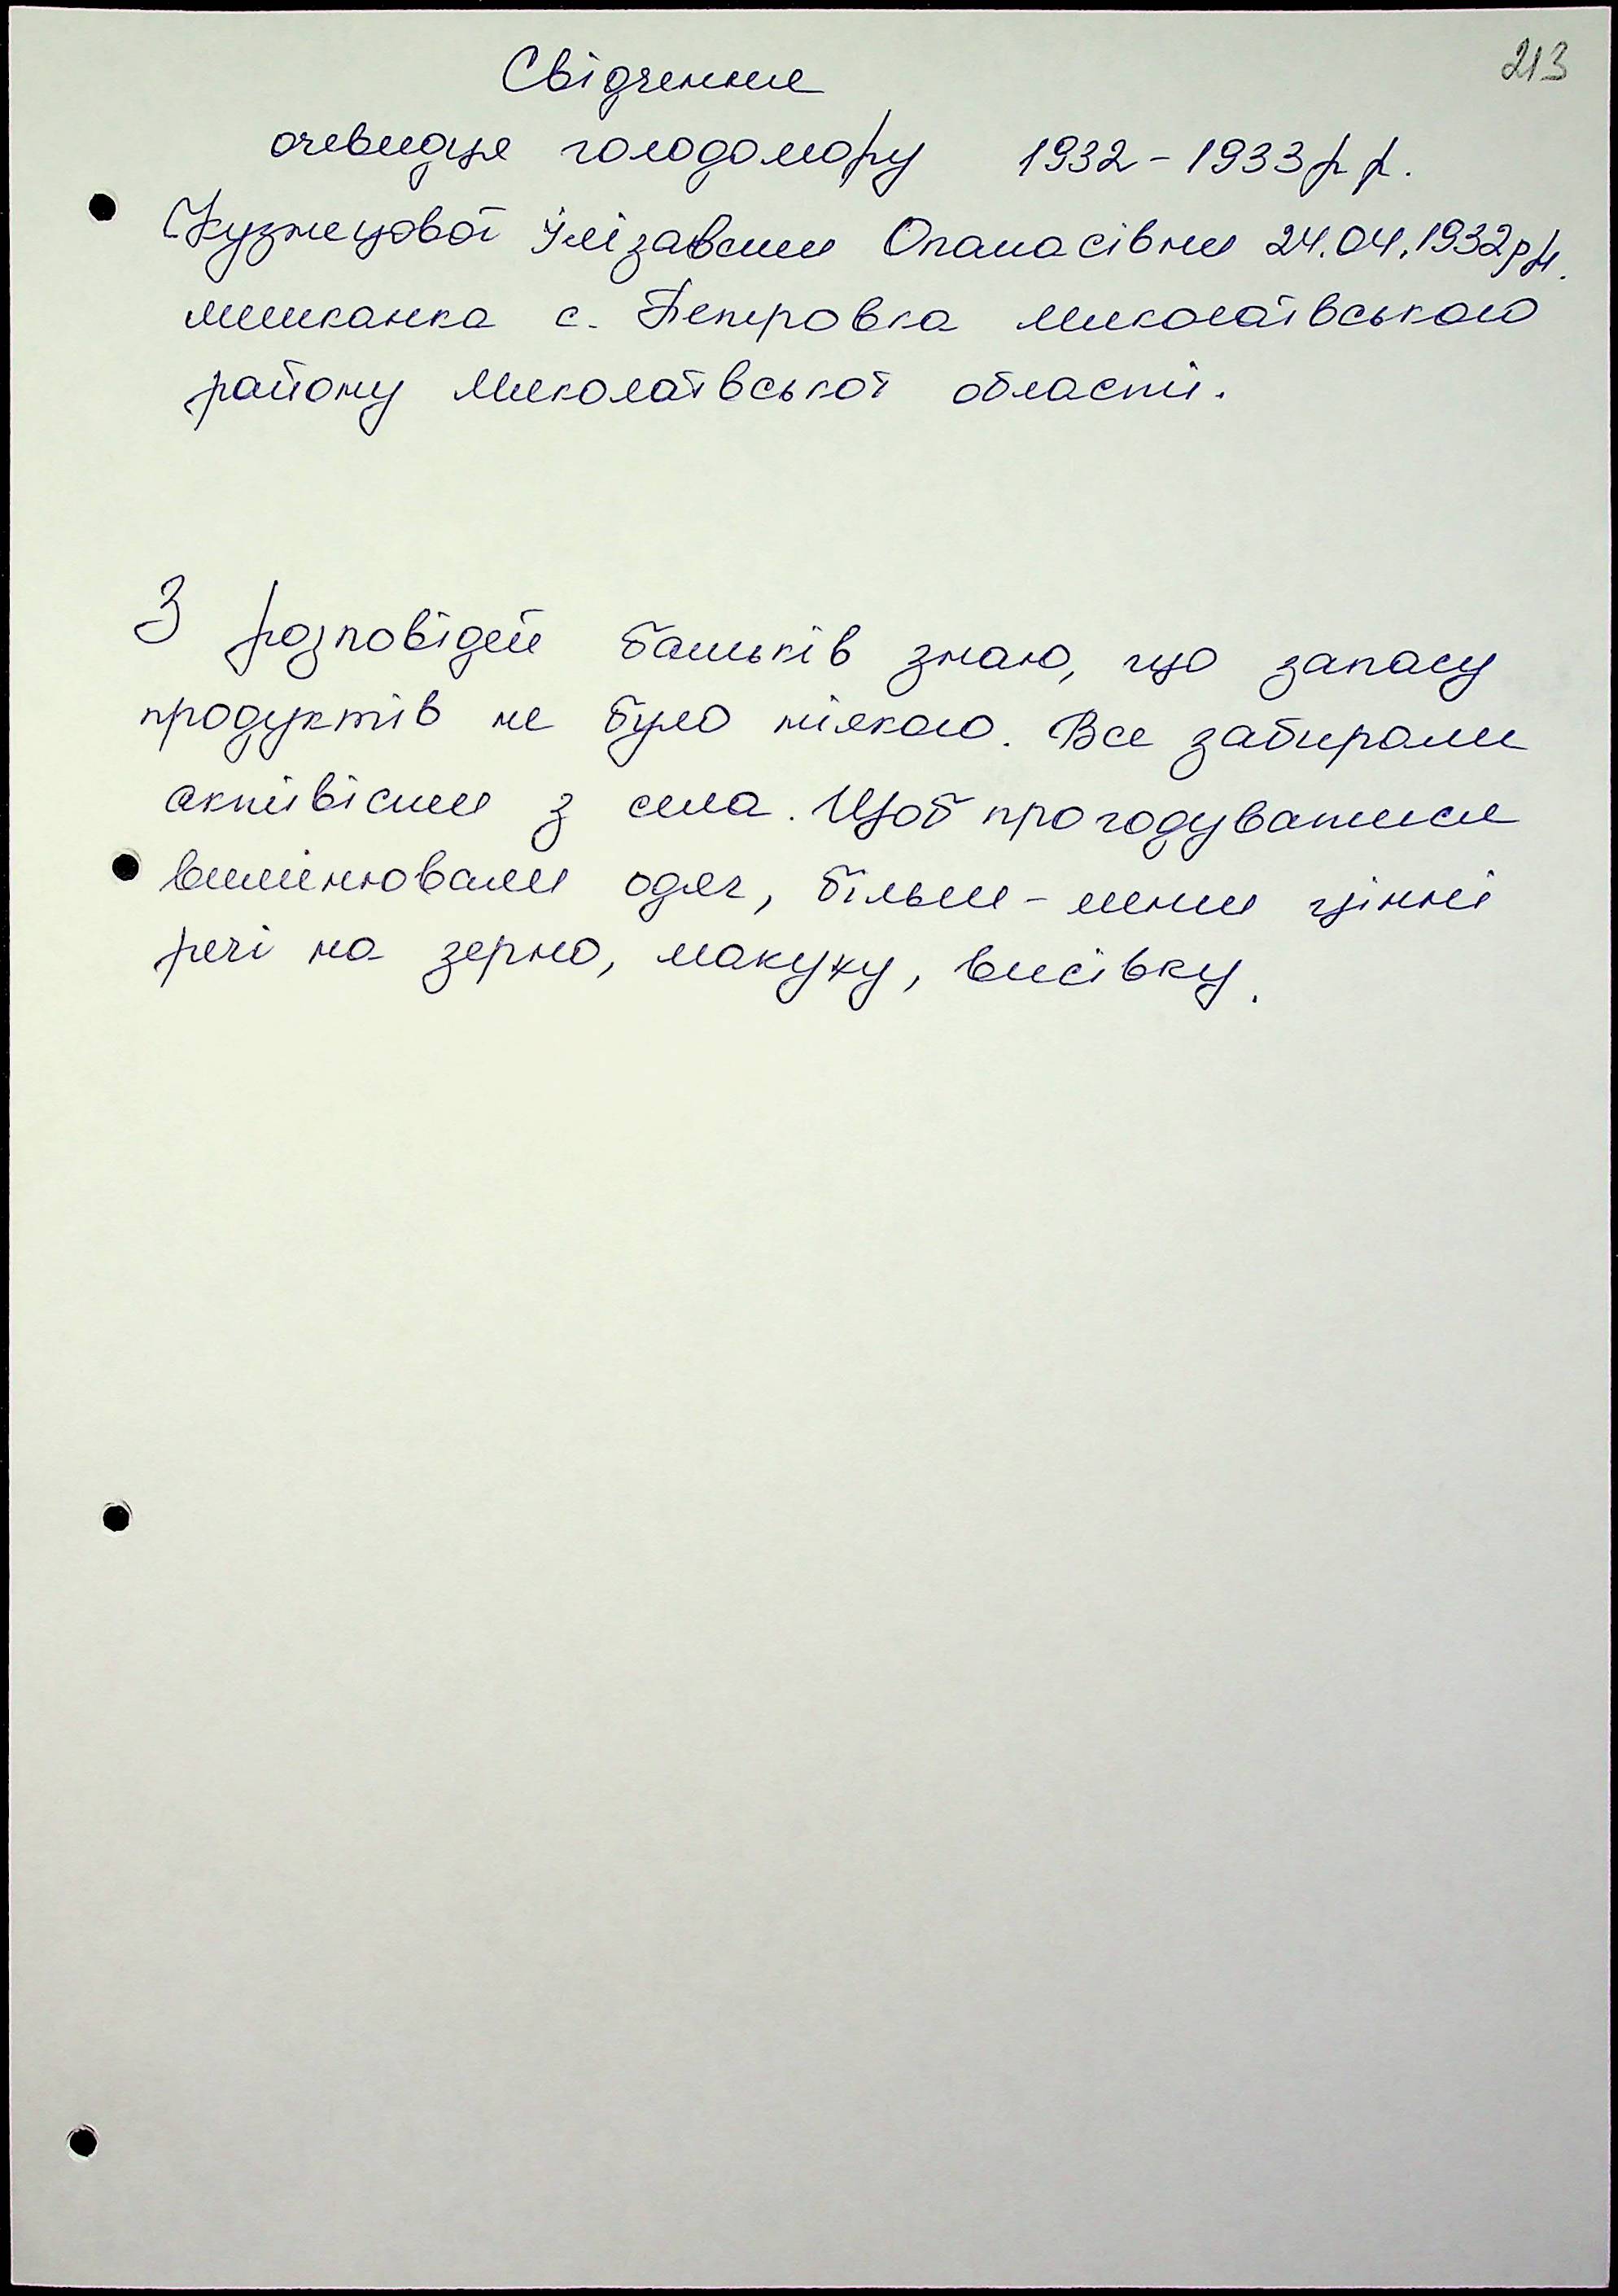 213
Свідчення
очевидця голодомору 1932-1933 р р.
Кузнецової Їлізавети Опанасівни 24.04.1932р н.
мешканка с. Петровка миколаївського
району Миколаївської області.
З розповідей батьків знаю, що запасу
продуктів не було ніякого. Все забирали
активісти з села. Щоб прогодуватися
вимінювали одяг, більш-менш цінні
речі на зерно, макуху, висівку.